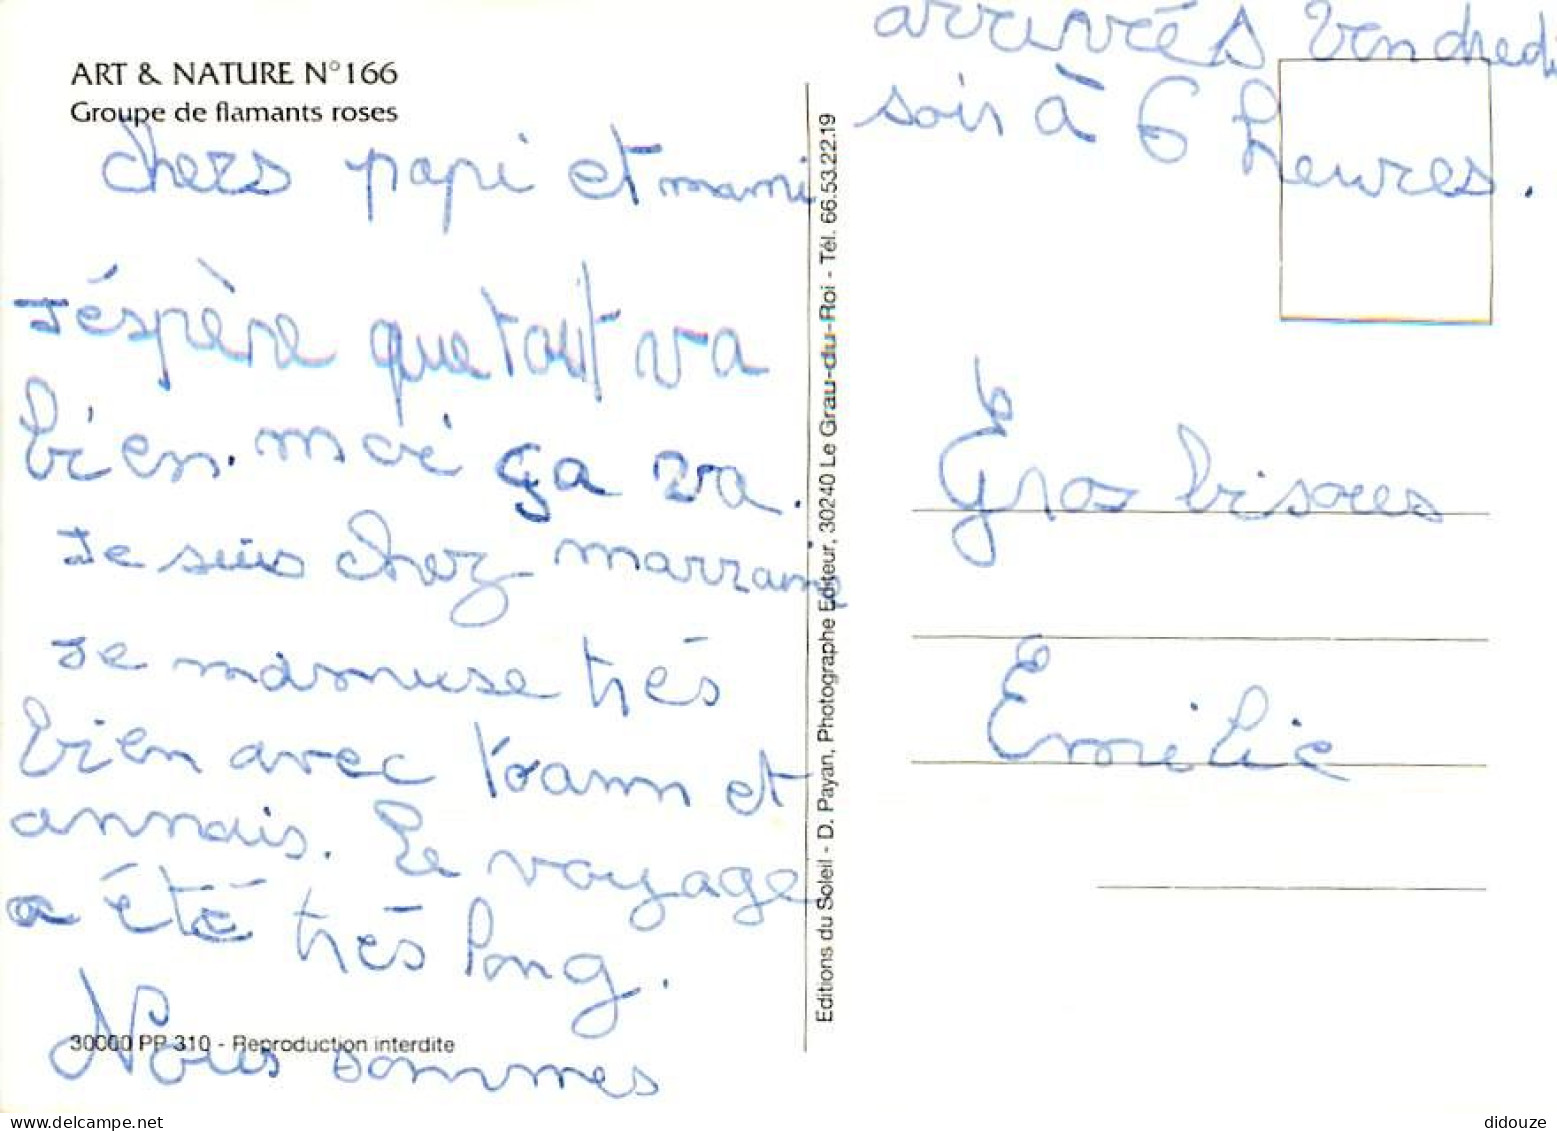 ART & NATURE N°166
Groupe de flamants roses
chers papi et mami
J'éspère que tout va
bien. moi ça va.
Je suis chez marraine
Je m'amuse très
bien avec Yoann et
annaïs. Le voyage
a été très long.
30000 PP 310 - Reproduction interdite
Nous sommes
Editions du Soleil - D. Payan, Photographe Editeur, 30240 Le Grau-du-Roi - Tél. 66.53.22.19
arrivés Vendredi
soir à 6 heures.
Gros bisoues
Emilie
delcampe.net
didouze